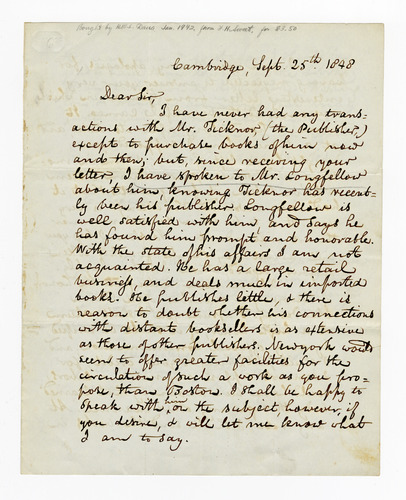 Bought by W.H.S. Davis Jan. 1892, from F. H. Sweet, for $3.50
Cambridge, Sept. 25th 1848
Dear Sir,
I have never had any trans=
actions with Mr. Ticknor (the Publisher,)
except to purchase books of him now
and then; but, since receiving your
letter, I have spoken to Mr. Longfellow
about him, knowing Ticknor has recent-
ly been his publisher. Longfellow is
well satisfied with him, and says he
has found him prompt and honorable.
With the state of his affairs I am not
acquainted. He has a large retail
business, and deals much in imported
books. He publishes little, & there is
reason to doubt whether his connections
with distant booksellers is as extensive
as those of other publishers. New york would
seem to offer greater facilities for the
circulation of such a work as you pro=
pose, than Boston. I shall be happy to
speak with him on the subject, however, if
you desire, & will let me know what
I am to say.